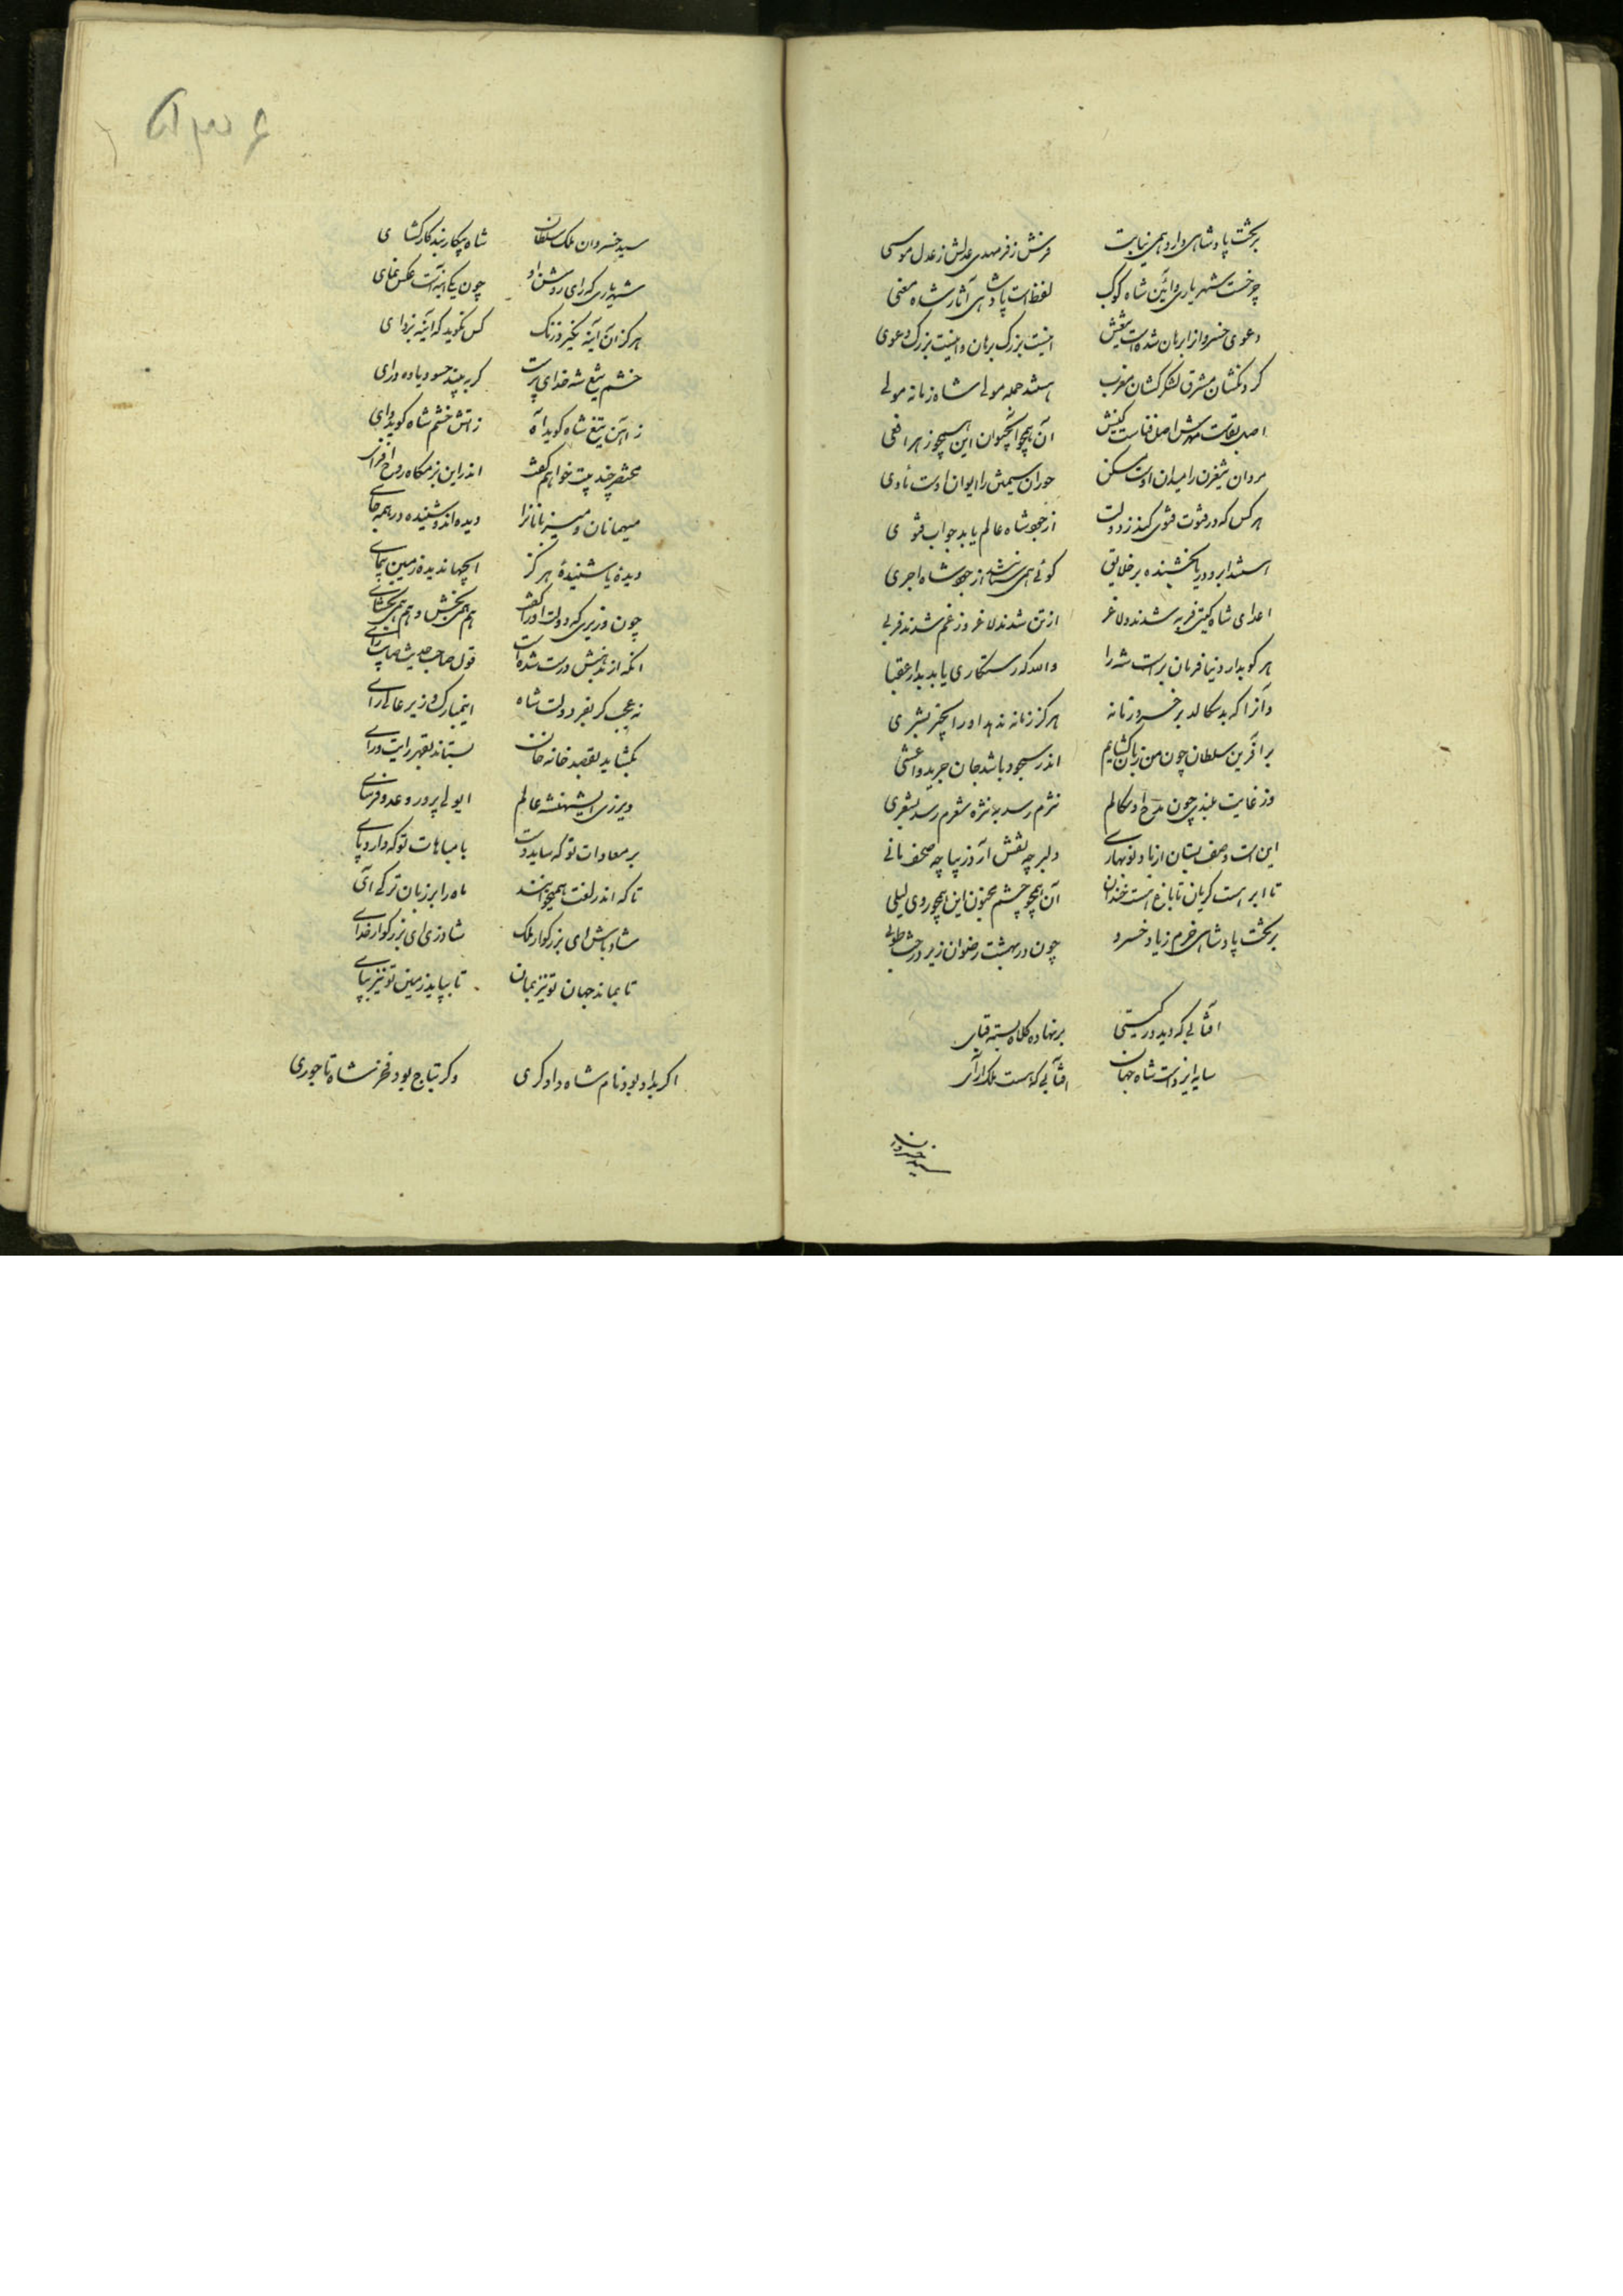 بر تخت پادشاهی دارد همی نیابت فرش ز فر مهدی عدلش ز عدل موسی
چرخست شهریاری و آئین شاه کوکب لفظ است پادشاهی آثار شاه معنی
دعوی خسروانرا برهان شده است تیغش اینست بزرک برهان و اینست بزرک دعوی
کردنکشان مشرق لشکرکشان مغرب هستند جمله مولی شاه زمانه مولی
اصل بقاست مهرش اصل فناست کینش آن همچو آب حیوان این همچو زهر افعی
مردان تیغزن را میدان اوست مسکن حوران سیمتن را ایوان اوست مأوی
هرکس که در فتوت فتوی کند ز دولت از جود شاه عالم یابد جواب فتوی
هستند ابر و دریا بخشنده بر خلایق کوئی همی ستانند از جود شاه اجری
اعدای شاه کیتی فربه شدند و لاغر از تن شدند لاغر وز غم شدند فربی
هر کو بدار دنیا فرمان بر است شه را والله که رستکاری یابد بدار عقبا
و آنرا که بد سکالد بر خسرو زمانه هرکز زمانه ندهد او را بخیر بشری
بر آفرین سلطان چون من زبان کشایم اندر سجود باشد جان جریر و اعشی
وز غایت بلندی چون مدح او سکالم نثرم رسد بنثره شعرم رسد بشعری
این است وصف بستان از باد نوبهاری دلبر چو نقش آزر زیبا چو صحف مانی
تا ابر هست کریان تا باغ هست خندان آن همچو چشم مجنون این همچو روی لیلی
بر تخت پادشاهی خرم زیاد خسرو چون در بهشت رضوان زیر درخت طوبی
آفتابی که دید در کیتی برنهاده کلاه بسته قبای
سایه ایزد است شاه جهان آفتابی که هست ملک آرای
سید خسروان
سید خسروان ملک سلطان شاه پیکار بند کارکشای
شهریاری که رای روشن او چون یکی آینه است عکس نمای
هرکز آن آینه نکیرد زنک کس نکوید که آینه بزدای
خشم تیغ شه خدای پرست کر به بیند حسود یاوه درای
ز آهن تیغ شاه کوید آه ز آتش خشم شاه کوید وای
مختصر چند بیت خواهم کفت اندر این بزمکاه روح افزای
میهمانان و میزبانانرا دیده اند و شنیده در همه جای
دیده یا شنیده هرکز اینچنها ندیده زمین پیمای
چون وزیری که دولت او را کفت هم همی بخش و هم همی بخشای
آنکه از مذهبش درست شده است قول صاحب حدیث صاحب رای
نه عجب کر بفر دولت شاه این مبارک وزیر عالی رای
بکشاید بقصد خانه خان بستاند بقهر رایت رای
دیر زی ای شهنشه عالم ای ولی پرور و عدو فرسای
بر معادات تو که ساید دست با مباهات تو که دارد پای
تا که اندر لغت همی خوانند ماه را بر زبان ترکی آی
شاد باش ای بزرکوار ملک شاد زی ای بزرکوار خدای
تا بماند جهان تو نیز بمان تا بپاید زمین تو نیز بپای
اکر بداد بود نام شاه دادکری وکر بتاج بود فخر شاه تاجوری